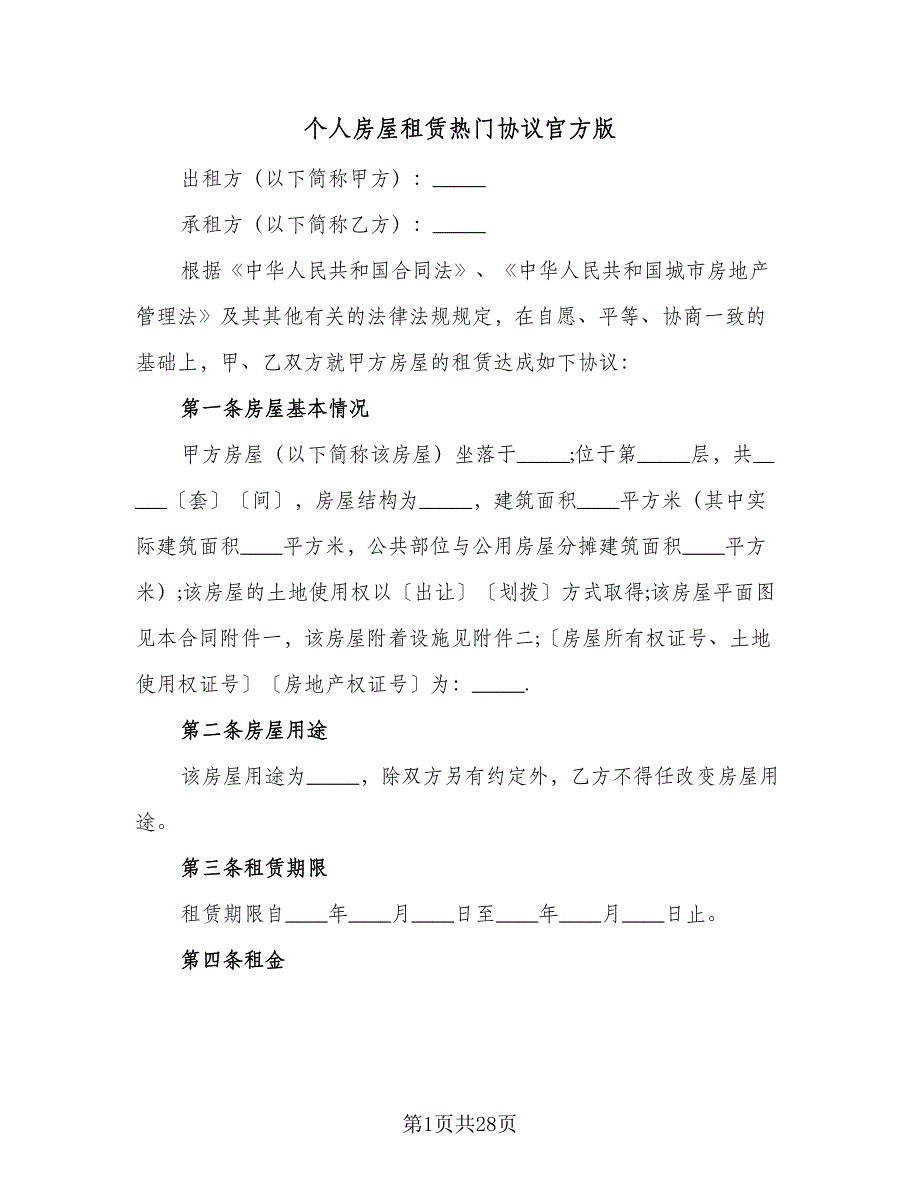 个人房屋租赁热门协议官方版
出租方（以下简称甲方）：_____
承租方（以下简称乙方）：_____
根据《中华人民共和国合同法》、《中华人民共和国城市房地产
管理法》及其其他有关的法律法规规定，在自愿、平等、协商一致的
基础上，甲、乙双方就甲方房屋的租赁达成如下协议：
第一条房屋基本情况
甲方房屋（以下简称该房屋）坐落于_____;位于第_____层，共__
___〔套〕〔间〕，房屋结构为_____，建筑面积____平方米（其中实
际建筑面积____平方米，公共部位与公用房屋分摊建筑面积____平方
米）;该房屋的土地使用权以〔出让〕〔划拨〕方式取得;该房屋平面图
见本合同附件一，该房屋附着设施见附件二;〔房屋所有权证号、土地
使用权证号〕〔房地产权证号〕为：_____.
第二条房屋用途
该房屋用途为_____，除双方另有约定外，乙方不得任改变房屋用
途。
第三条租赁期限
租赁期限自____年____月____日至____年____月____日止。
第四条租金
第1页共28页